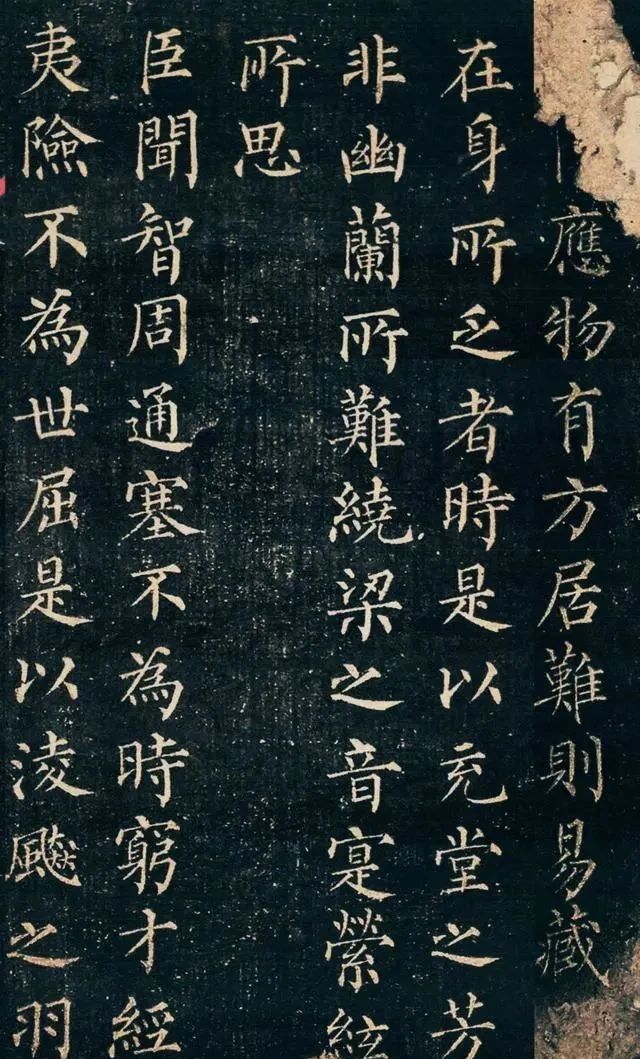 應物有方居難則易藏
在身所乏者時是以充堂之芳
非幽蘭所難繞梁之音寔縈絃
所思
臣聞智周通塞不為時窮才經
夷險不為世屈是以淩飇之羽